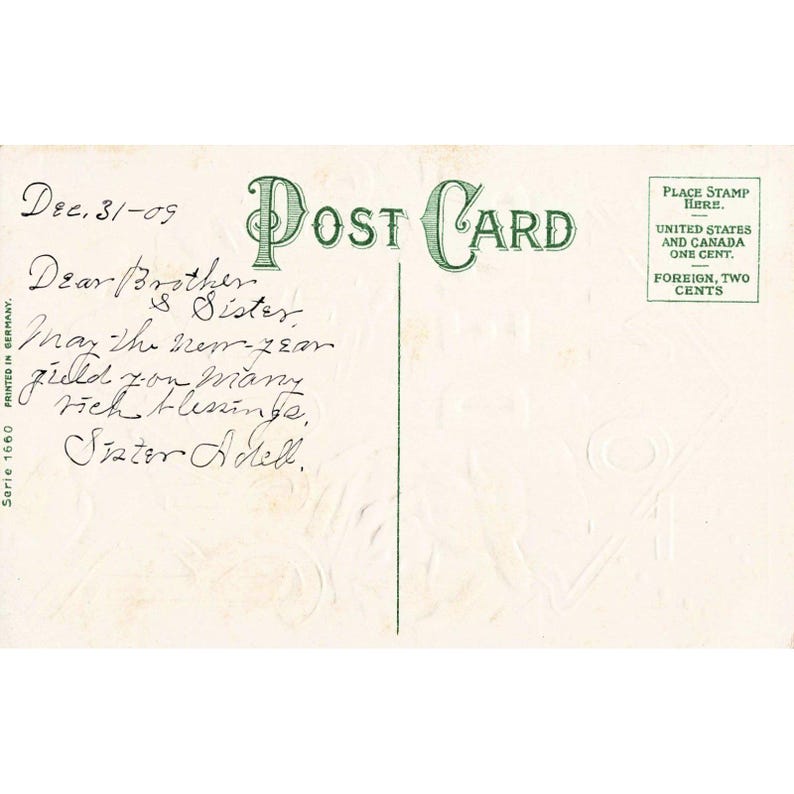 Dec. 31-09
POST CARD
PLACE STAMP
HERE.
UNITED STATES
AND CANADA
ONE CENT.
FOREIGN, TWO
CENTS
Dear Brother
& Sister,
May the new-year
yield you many
rich blessings.
Sister Adell.
Serie 1660 PRINTED IN GERMANY.